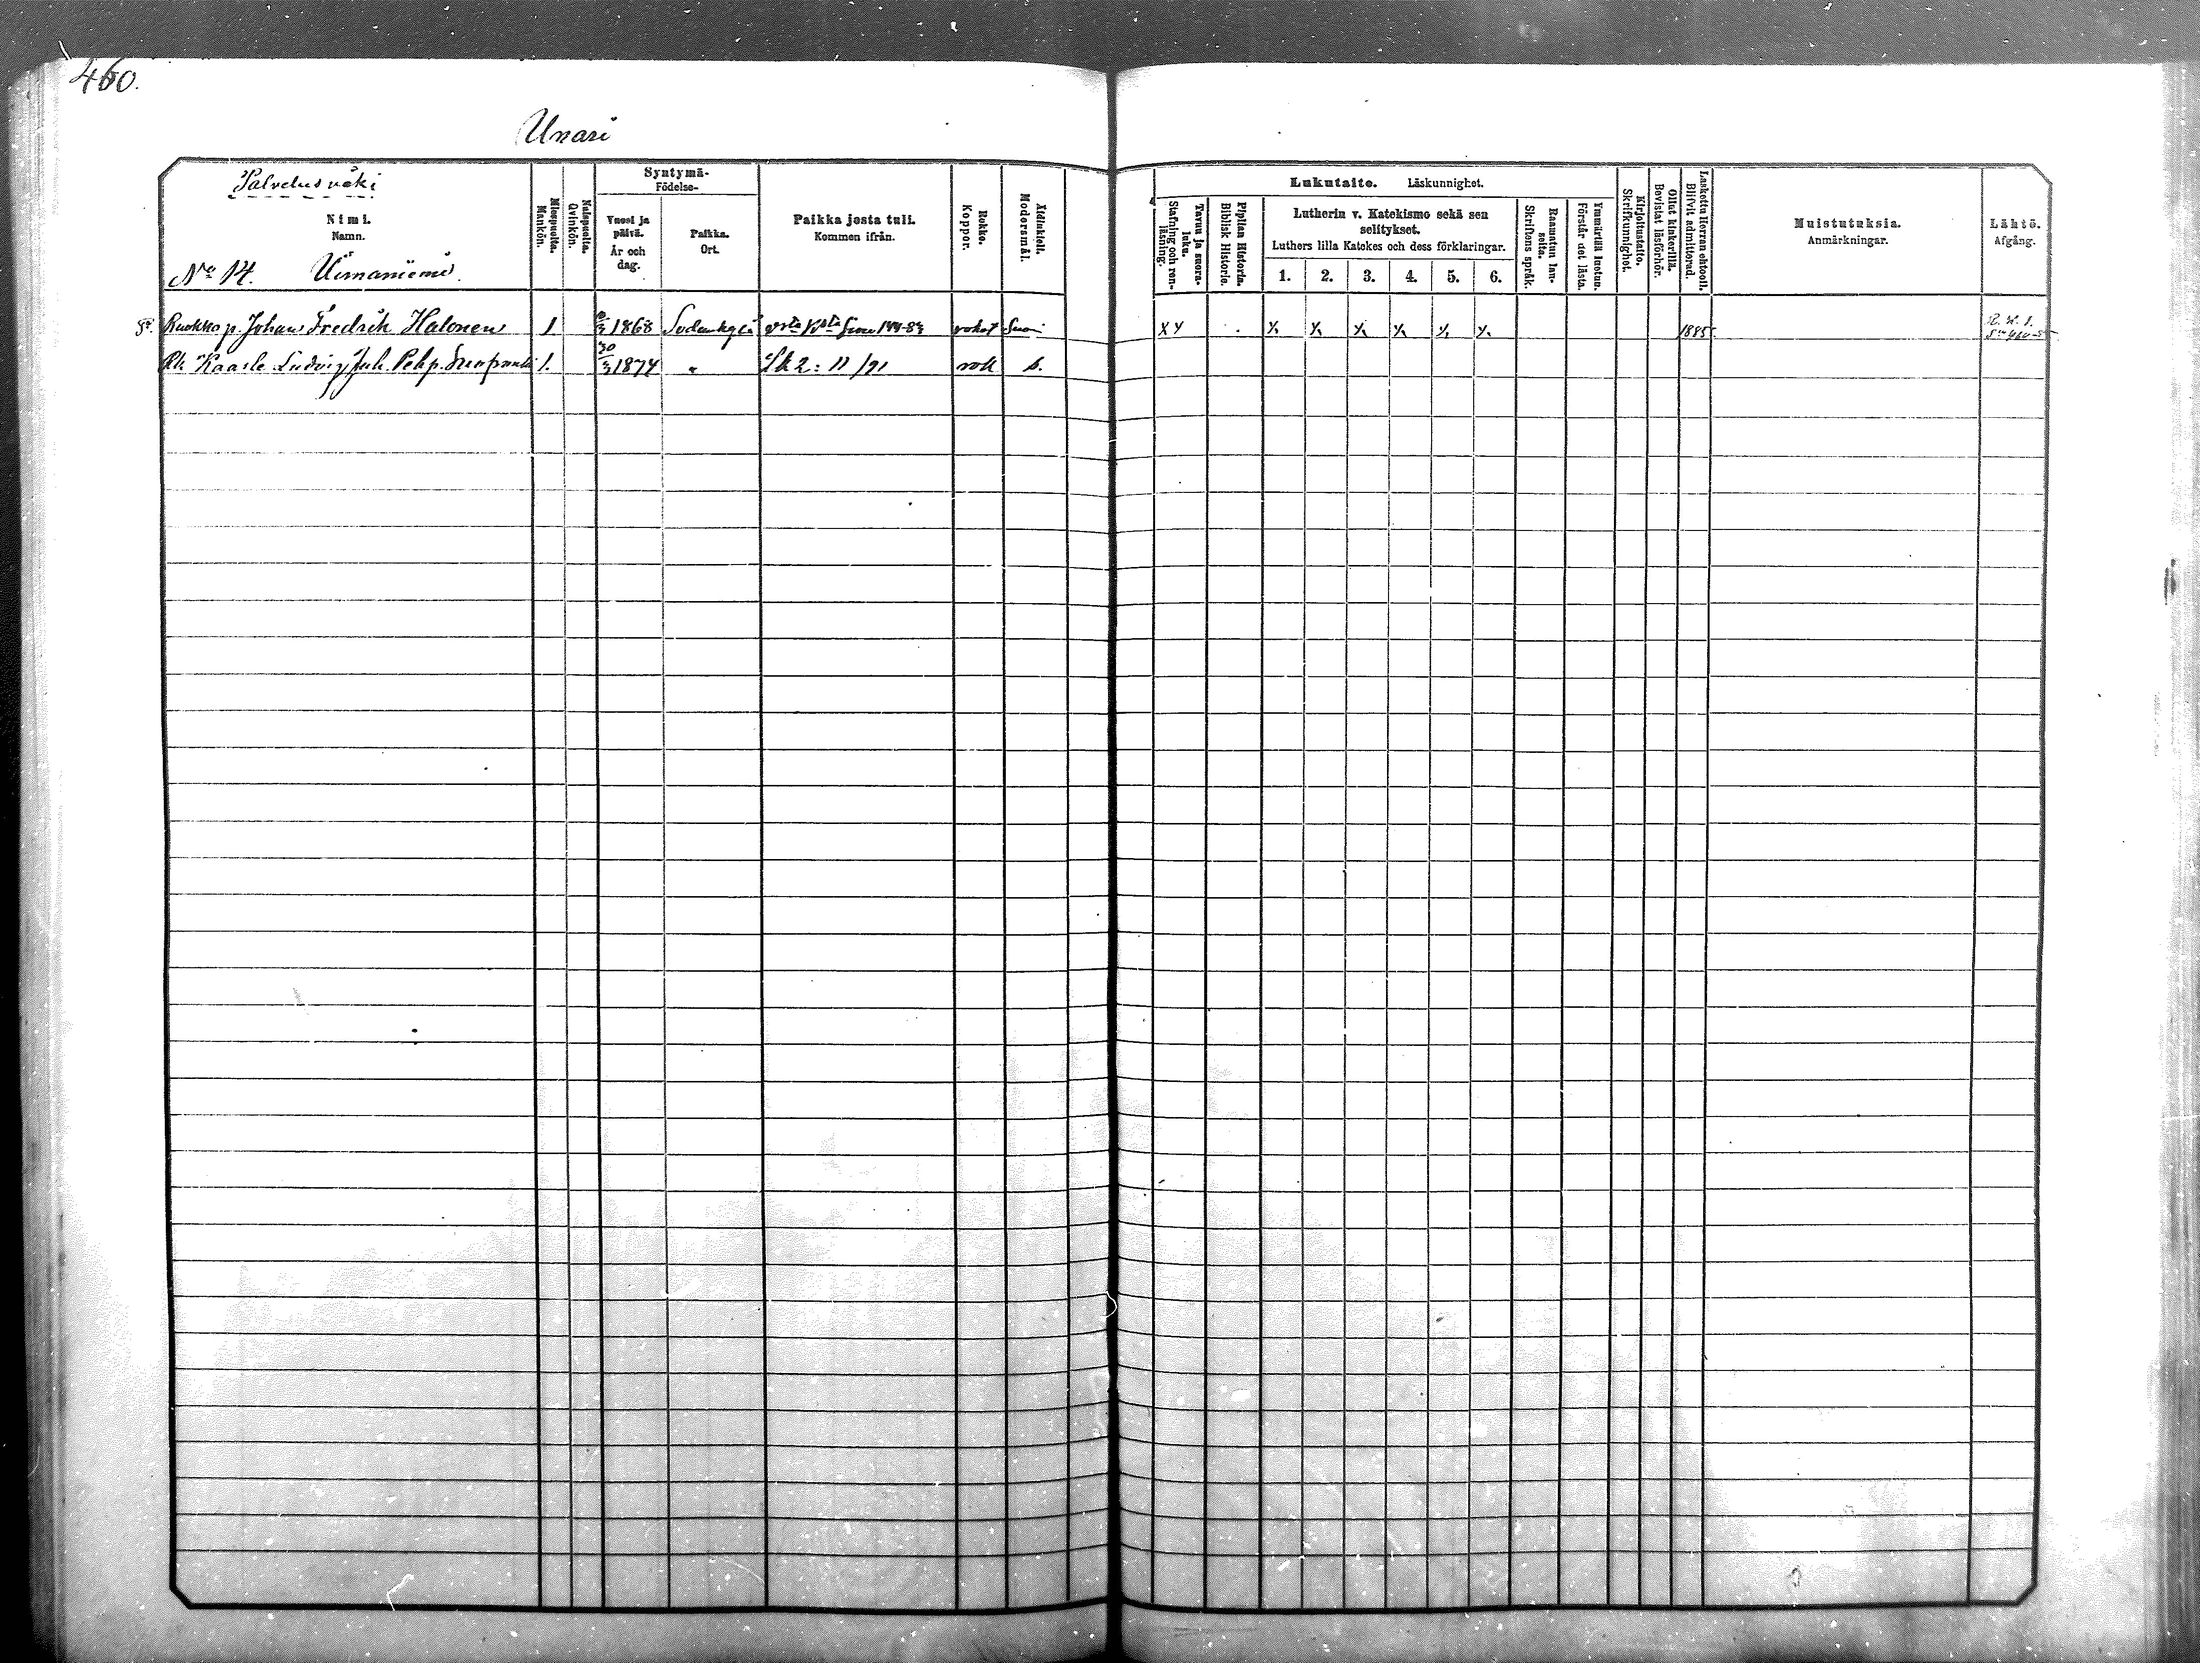 460.
Unari
Palvelusväki
Nimi.
Namn.
No 14. Uimaniemi.
Miespuolta.
Mankön.
Naispuolta.
Qvinkön.
Syntymä-
Födelse-
Vuosi ja päivä.
År och dag.
Paikka.
Ort.
Paikka josta tuli.
Kommen ifrån.
Rokko.
Koppor.
Äidinkieli.
Modersmål.
Lukutaito. Läskunnighet.
Tavuu ja suora-luku.
Stafning och ren-läsning.
Piplian Historia.
Biblisk Historie.
Lutherin v. Katekismo sekä sen selitykset.
Luthers lilla Katekes och dess förklaringar.
1. 2. 3. 4. 5. 6.
Raamatun lau-seita.
Skriftens språk.
Ymmärtää luetun.
Förstår det lästa.
Kirjoitustaito.
Skrifkunnighet.
Ollut kinkerillä.
Bevistat läsförhör.
Laskettu Herran ehtooll.
Blifvit admitterad.
Muistutuksia.
Anmärkningar.
Lähtö.
Afgång.
p. Johan Fredrik Halonen 1 1868 1885
Kaarle Ludvig Juh. 1. 30/3 1874 " Sk 2: 11/91 rok s.